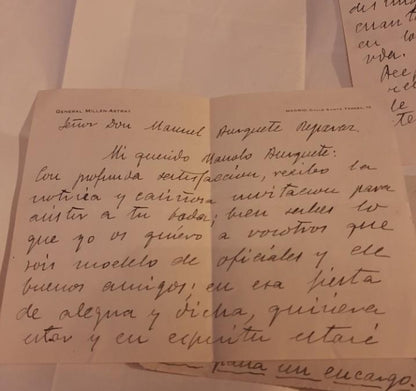 GENERAL MILLÁN ASTRAY
MADRID
Señor Don Manuel Aunguete Reparaz.
Mi querido Manolo Aunguete:
Con profunda satisfaccion, recibo la
noticia y cariñosa invitacion para
asistir a tu boda; bien sabes lo
que yo os quiero a vosotros que
sois modelo de oficiales y de
buenos amigos; en esa fiesta
de alegria y dicha, quisiera
estar y en espiritu estaré
para un encargo.
en la
vda.